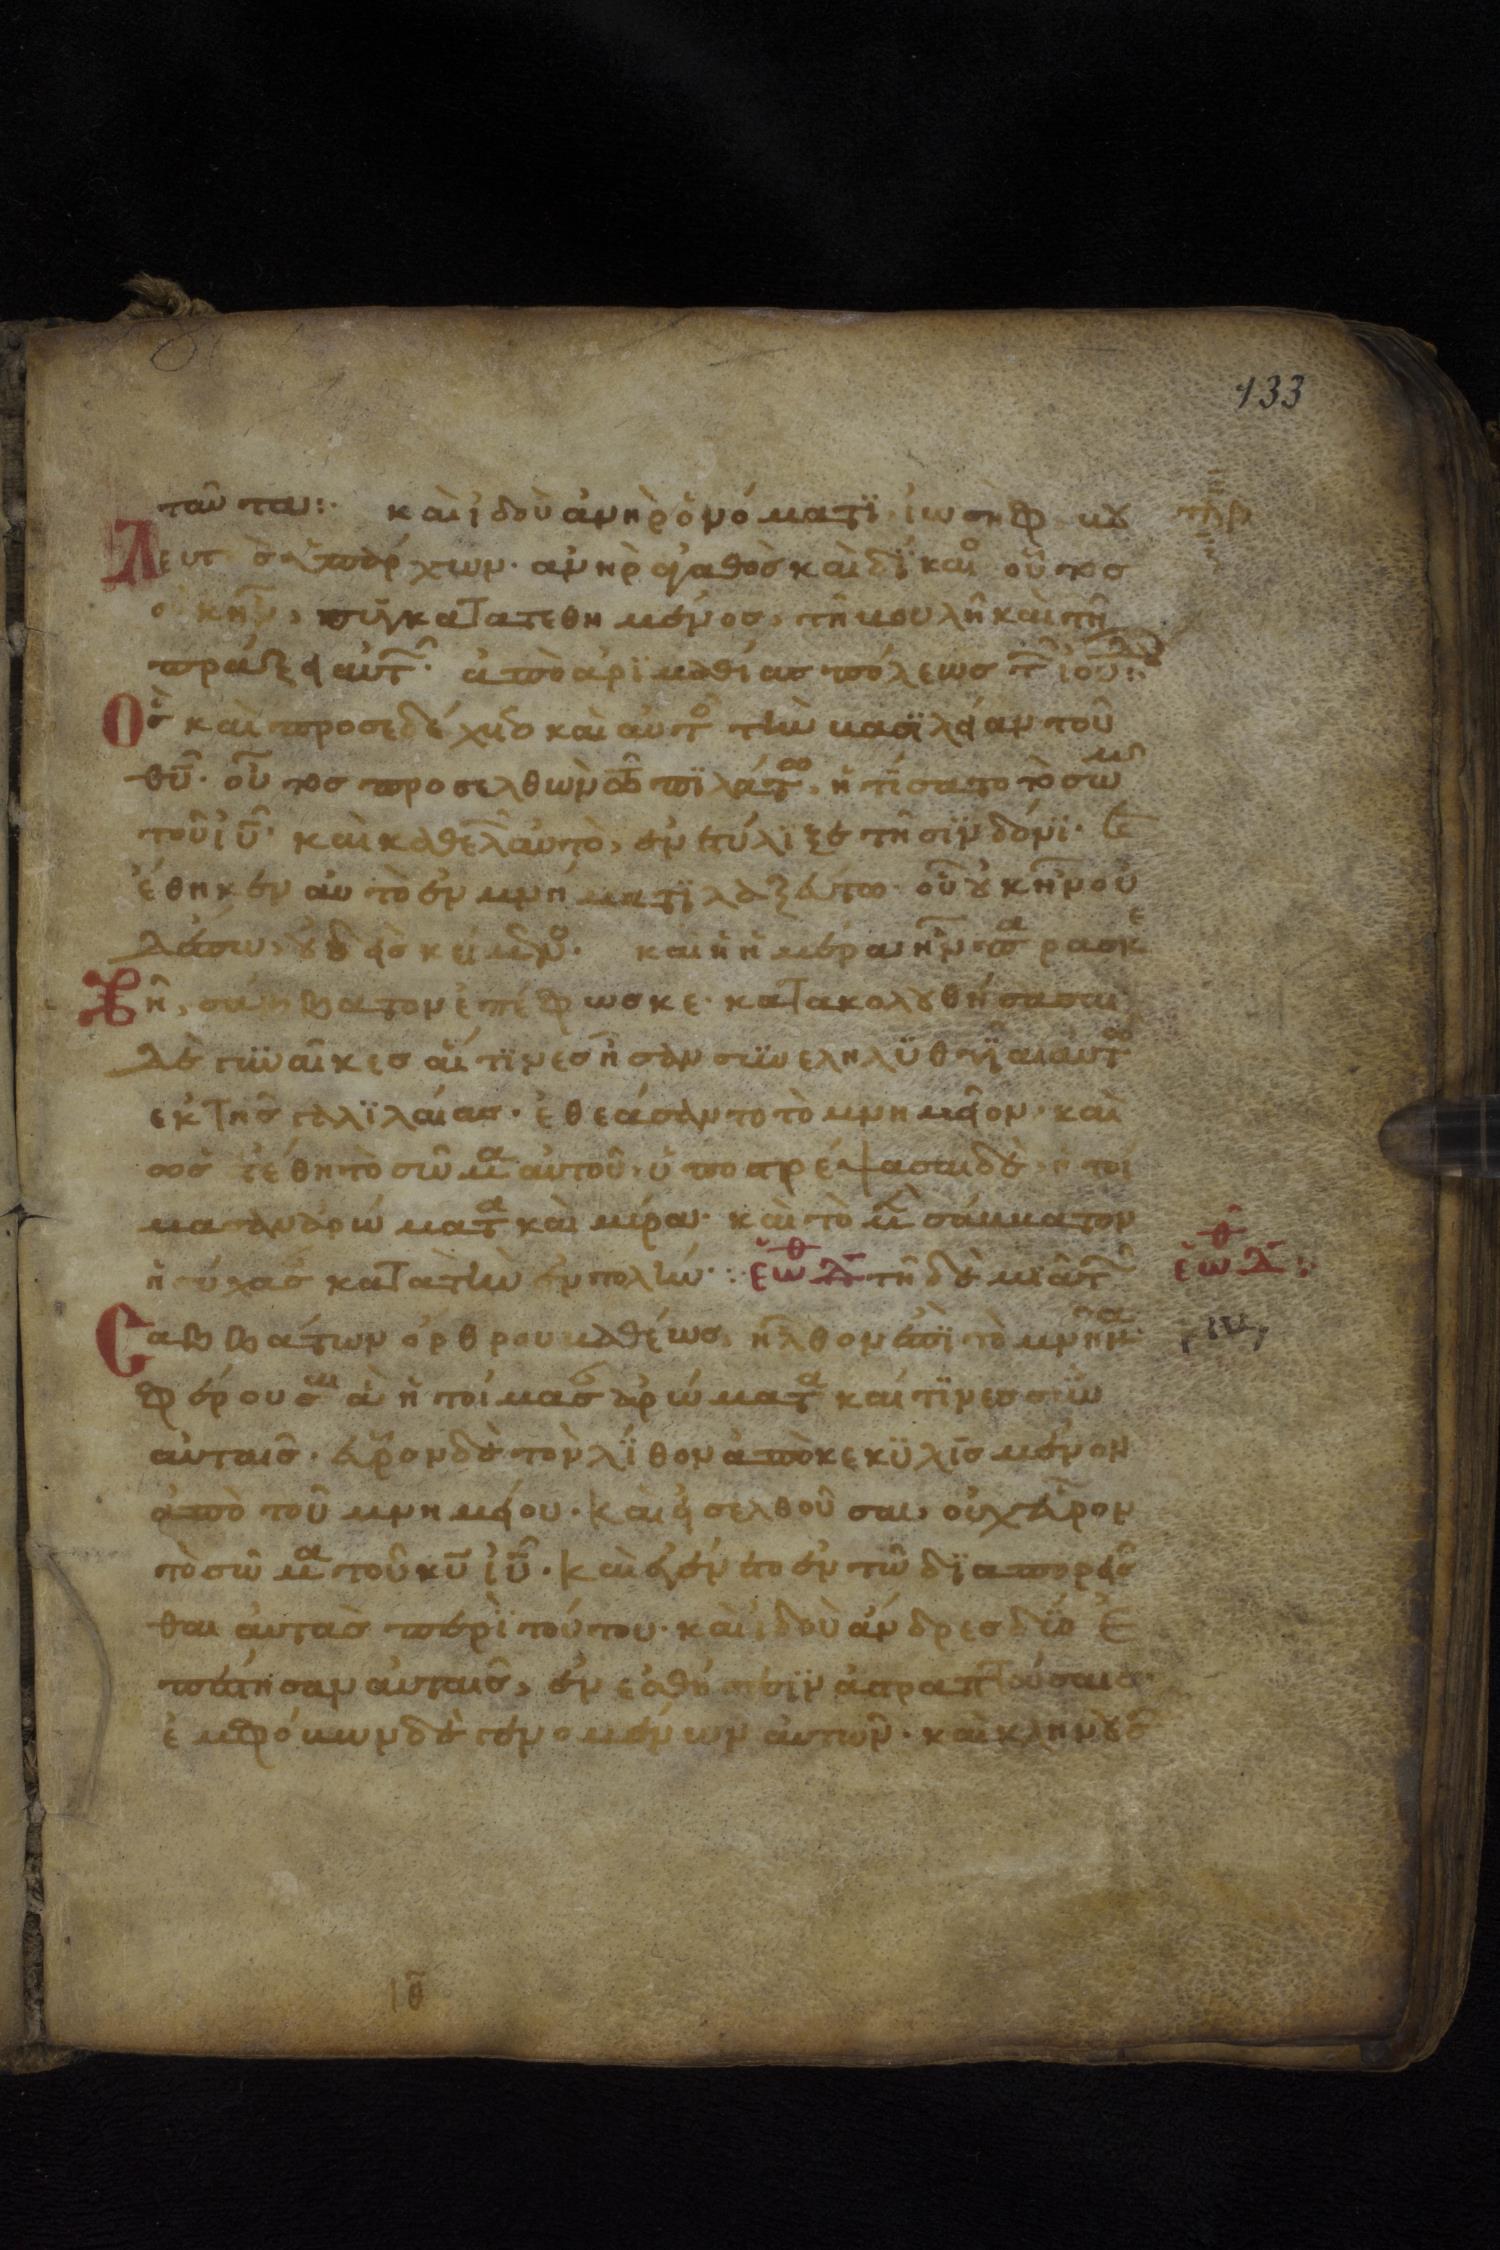 133
ταῦτα: καὶ ἰδοὺ ἀνὴρ ὀνόματϊ ἰωσὴφ βȣ
λευτὴς ὑπάρχων· ἀνὴρ ἀγαθὸς καὶ δίκαιο οὗτος
οὐκ ἦν, συγκατατεθημένος, τῆ βουλῆ καὶ τῆ
πράξει αὐτ· ἀπὸ ἀρϊμαθίας πόλεως τ ἰου:
Ὃς καὶ προσεδέχετο καὶ αὐτο τὴν βασϊλείαν τοῦ
θῦ· οὗτος προσελθὼν τῶ πϊλάτω, ἠτήσατο τὸ σῶμ
τοῦ ἰῦ· καὶ καθελ αὐτὸ, ἐνετύλϊξε τῆ σϊνδόνϊ· καὶ
ἔθηκεν αὐτὸ ἐν μνήματϊ λαξευτῶ· οὗ ȣκ ἦν οὐ
δέπω, ȣδεὶς κείμενο· καὶ ἡ ἡμέρα, ἦν παρασκε
βῆ, σάββατον ἐπέφωσκε· κατακολȣθήσασαι
δὲ γϋναῖκες αἵτϊνες ἦσαν σϋνεληλϋθϋῖαι αὐτῶ
ἐκ τῆς γαλϊλαίας· ἐθεάσαντο τὸ μνημεῖον· καὶ
ὡς ἐτέθη τὸ σῶμα αὐτοῦ· ὑποστρέψασαι δὲ, ἡτοί
μασαν ἀρώματα καὶ μύρα· καὶ τὸ μ σάββατον
ἡσύχασ κατὰ τὴν ἐντολήν· : ἑωθ Δ τῆ δὲ μιᾶ τ
ἑωθ Δ:
Σαββάτων ὄρθρου βαθέως, ἦλθον ἐπὶ τὸ μνῆμα
φέρουσαι ἃ ἡτοίμασ ἀρώματα καί τϊνες σϋν
αὐταῖς· εὗρον δὲ τὸν λίθον ἀποκεκϋλισμένον
ἀπὸ τοῦ μνημείου· Καὶ εἰσελθοῦσαι, οὐχ εὗρον
τὸ σῶμα τοῦ κῦ ἰῦ· Καὶ ἐγένετο ἐν τῶ δϊαπορεῖσ
θαι αὐτὰς περὶ τούτου· καὶ ἰδοὺ ἄνδρες δύο ἐ
πέστησαν αὐταῖς, ἐν ἐσθήσεσϊν ἀστραπτούσαις·
ἐμφόβων δὲ γενομένων αὐτῶν· καὶ κληνȣσ
ιθ